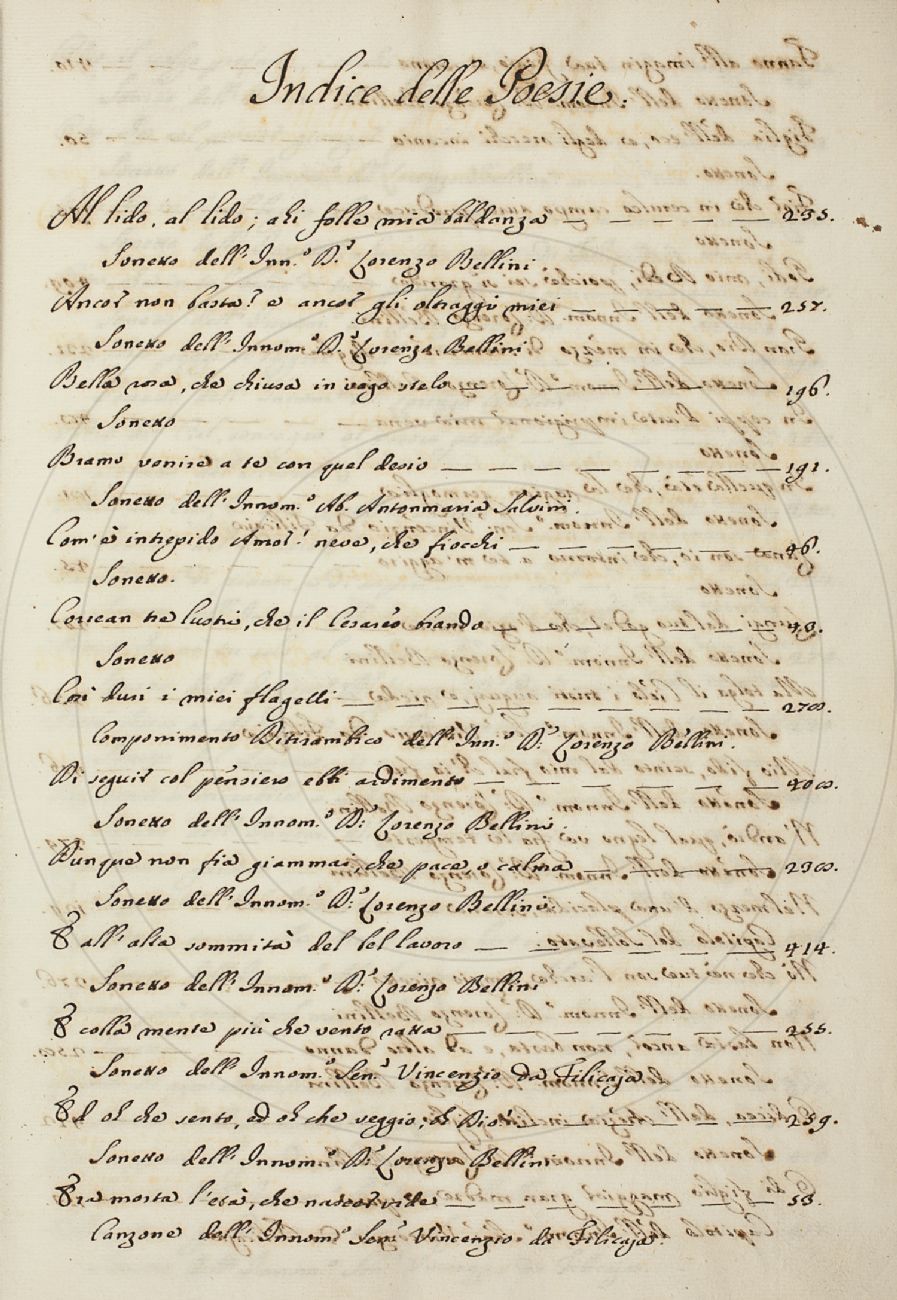 Indice delle Poesie.
Al lido, al lido; ahi folle mia baldanza — — — — — 235.
Sonetto dell'Inn.º D.r Lorenzo Bellini
Ancor non basta? e ancor gli oltraggi miei — — — — — 257.
Sonetto dell'Innom.º D.r Lorenzo Bellini
Bella rosa, che chiusa in vago stelo — — — — — 196.
Sonetto
Bramo venire a te con quel desio — — — — — — — 191.
Sonetto dell'Innom.º Ab. Antonmaria Salvini.
Com'è intrepido Amor! neve, che fiocchi — — — — — — 46.
Sonetto.
Correan tre lustri, che il Cesareo brando — — — — — 43.
Sonetto
Così duri i miei flagelli — — — — — — — — 270.
Componimento Ditirambico dell'Inn.º D.r Lorenzo Bellini.
Di seguir col pensiero ebbi ardimento — — — — — — 400.
Sonetto dell'Innom.º D.r Lorenzo Bellini.
Dunque non fia giammai, che pace, o calma — — — — — 230.
Sonetto dell'Innom.º D.r Lorenzo Bellini.
E all'alta sommità del bel lavoro — — — — — — 414.
Sonetto dell'Innom.º D.r Lorenzo Bellini
E colla mente più che vento ratta — — — — — — 255.
Sonetto dell'Innom.º Sen.r Vincenzio da Filicaja.
Ed oh che sento, ed oh che veggio, oh Dio! — — — — — 259.
Sonetto dell'Innom.º D.r Lorenzo Bellini
Era morta l'età, che nascer vide — — — — — — 53.
Canzone dell'Innom.º Sen.r Vincenzio da Filicaja.